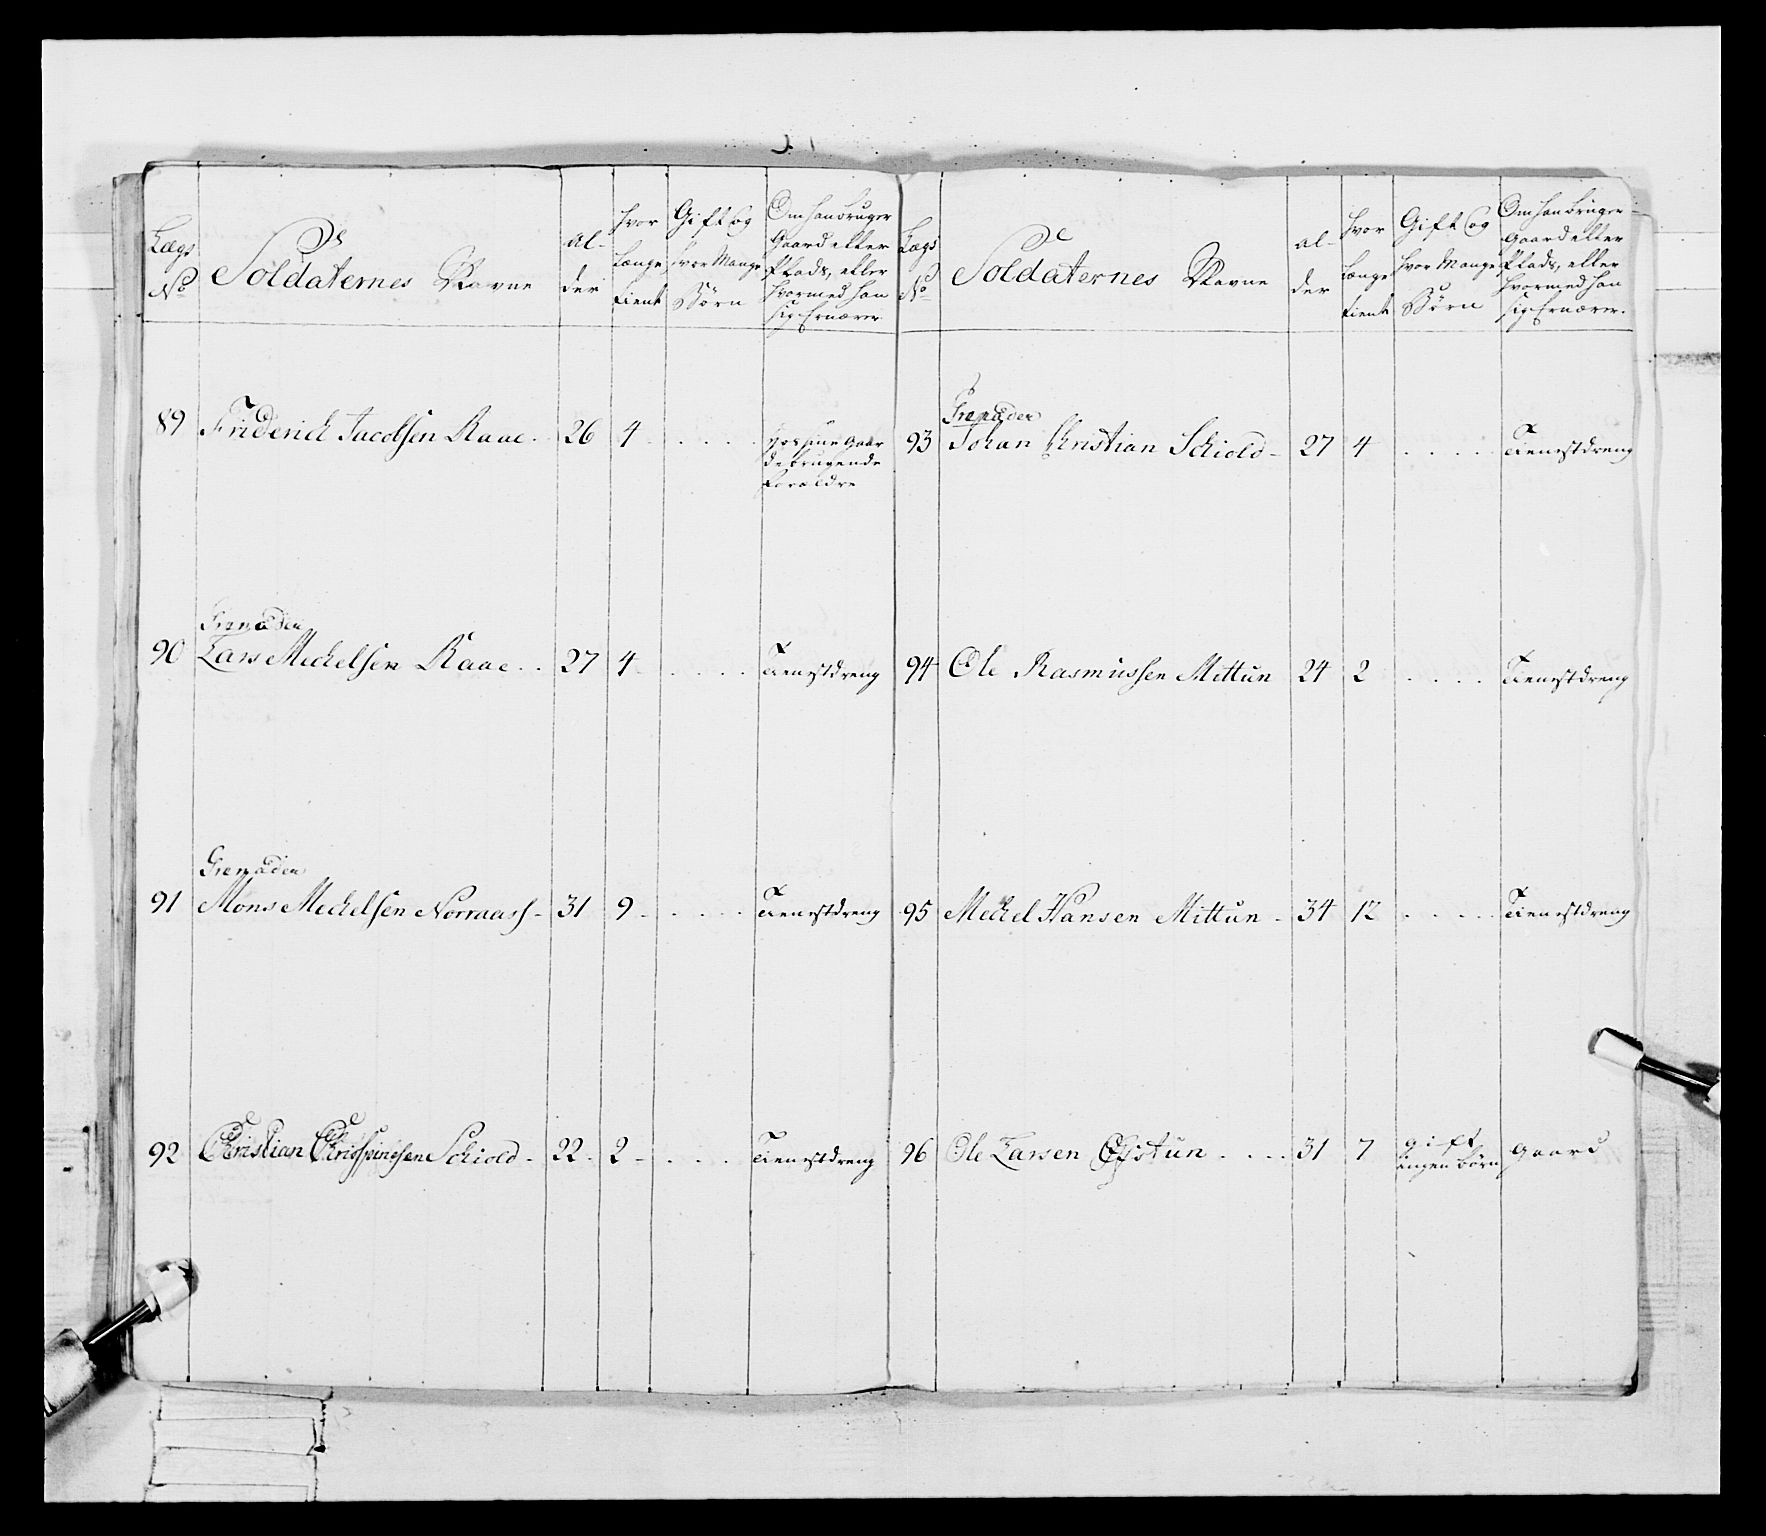 Lægs No
De Soldaternes Navne
Al-der
Hvor Længe tient
Gift og hvor Mange Børn
Om han bruger Gaard eller Plads, eller hvormed han sig Ernærer
89 Friderich Jacobsen Raae . 26 4 . . . . . hos sine Gaar
de brugende
Forældre
Grenader
90 Lars Mechelsen Raae . . 27 4 . . . . . Tienestdreng
Grenader
91 Mons Mechelsen Norraass - 31 9 - . . . . Tienestdreng
92 Christian Schiold - 22 - 2 - . . . . Tienestdreng
Lægs No
De Soldaternes Navne
Al-der
Hvor Længe tient
Gift og hvor Mange Børn
Om han bruger Gaard eller Plads, eller hvormed han sig Ernærer.
Grenader
93 Johan Christian Schiold - 27 4 . . . . . Tienestdreng
94 Ole Rasmussen Mittun 24 2 . . . . Tienestdreng
95 Mechel Hansen Mittun - 34 12 . . . . . Tienestdreng
96 Ole Larsen . . . . 31 7 gift
ingen børn Gaard